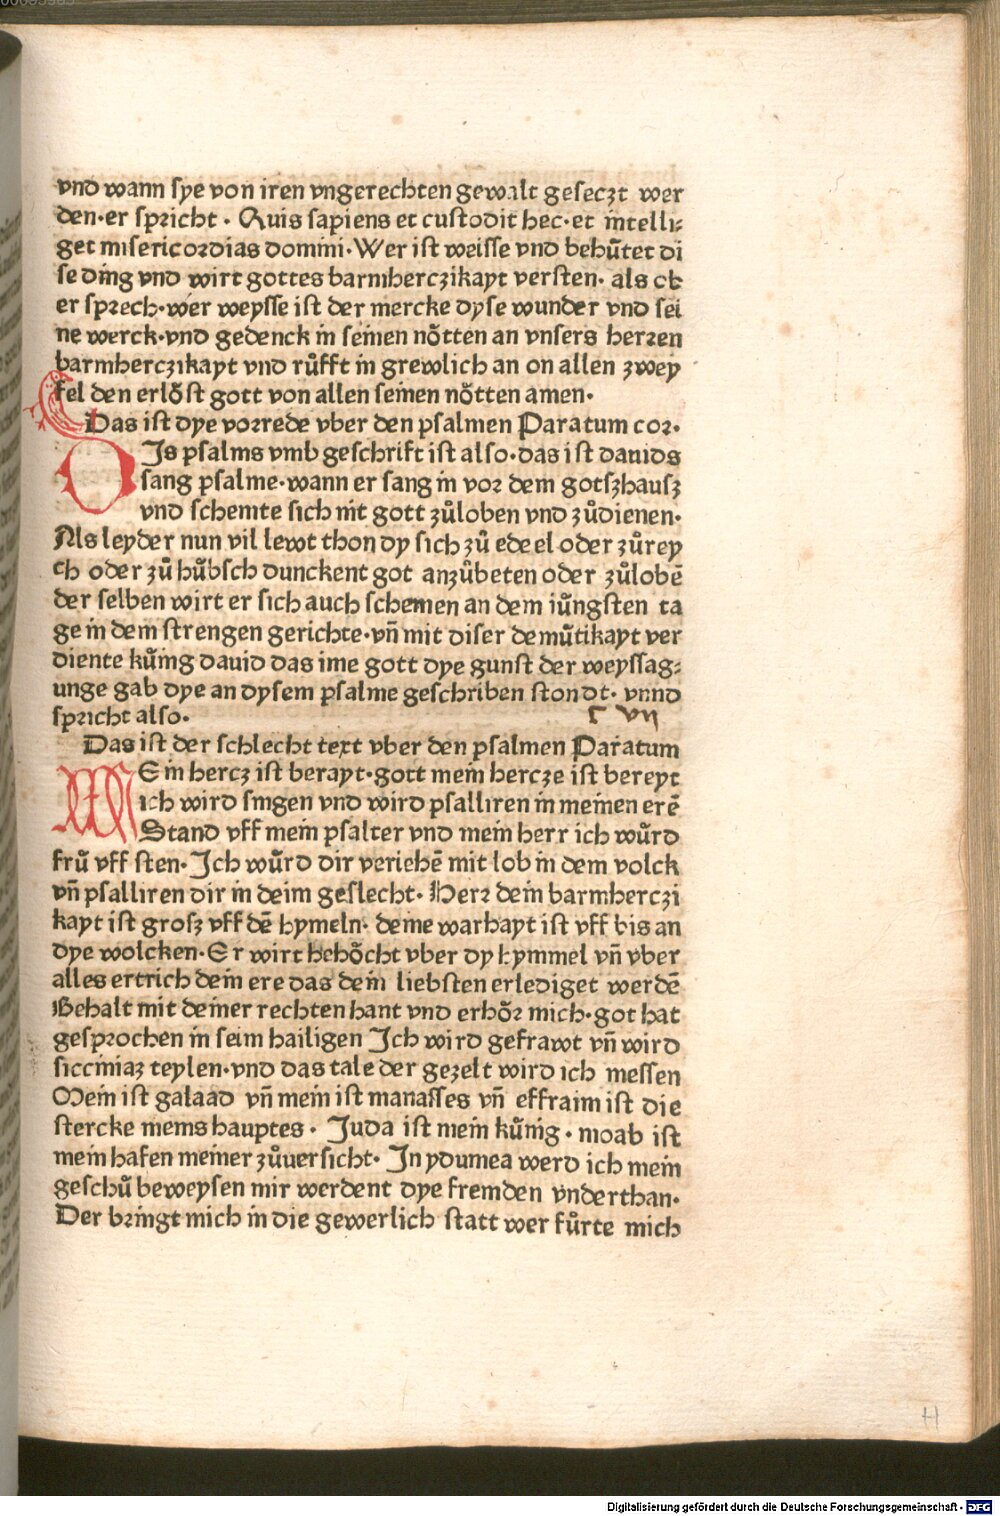 vnd wann sye von iren vngerechten gewalt geseczt wer
den·er spricht· Quis sapiens et custodit hec·et intelli⸗
get misericordias domini·Wer ist weisse vnd behuͤtet di
se ding vnd wirt gottes barmherczikayt versten· als ob
er sprech·wer weysse ist der mercke dyse wunder vnd sei
ne werck·vnd gedenck in seinen noͤtten an vnsers herren
barmherczikayt vnd ruͦfft in grewlich an on allen zwey
fel den erloͤst gott von allen seinen noͤtten amen·
Das ist dye vorrede vber den psalmen Paratum cor·
DIs psalms vmb geschrift ist also·das ist dauids
sang psalme·wann er sang in vor dem gotzhausz
vnd schemte sich nit gott zuͦloben vnd zuͦdienen·
Als leyder nun vil lewt thon dy sich zuͦ edeel oder zuͦrey
ch oder zuͦ huͤbsch dunckent got anzuͦbeten oder zuͦlobē
der selben wirt er sich auch schemen an dem iuͤngsten ta
ge in dem strengen gerichte·vn̄ mit diser demuͤtikayt ver
diente kuͤnig dauid das ime gott dye gunst der weyssag⸗
unge gab dye an dysem psalme geschriben stondt· vnnd
spricht also· c vij
Das ist der schlecht text vber den psalmen Paratum
MEin hercz ist berayt·gott mein hercze ist bereyt
ich wird singen vnd wird psalliren in meinen erē
Stand vff mein psalter vnd mein herr ich wuͤrd
fruͤ vff sten·Ich wuͤrd dir veriehē mit lob in dem volck
vn̄ psalliren dir in deim geslecht· Herr dein barmherczi
kayt ist grosz vff dē hymeln· deine warhayt ist vff bis an
dye wolcken·Er wirt hehoͤcht vber dy hymmel vn̄ vber
alles ertrich dein ere das dein liebsten erlediget werdē
Behalt mit deiner rechten hant vnd erhoͤr mich·got hat
gesprochen in seim hailigen Ich wird gefrawt vn̄ wird
siccimaz teylen·vnd das tale der gezelt wird ich messen
Mein ist galaad vn̄ mein ist manasses vn̄ effraim ist die
stercke meins hauptes· Juda ist mein kuͤnig·moab ist
mein hafen meiner zuͦuersicht· In ydumea werd ich mein
geschuͤ beweysen mir werdent dye fremden vnderthan·
Der bringt mich in die gewerlich statt wer fuͤrte mich
H
Digitalisierung gefördert durch die Deutsche Forschungsgemeinschaft - DFG